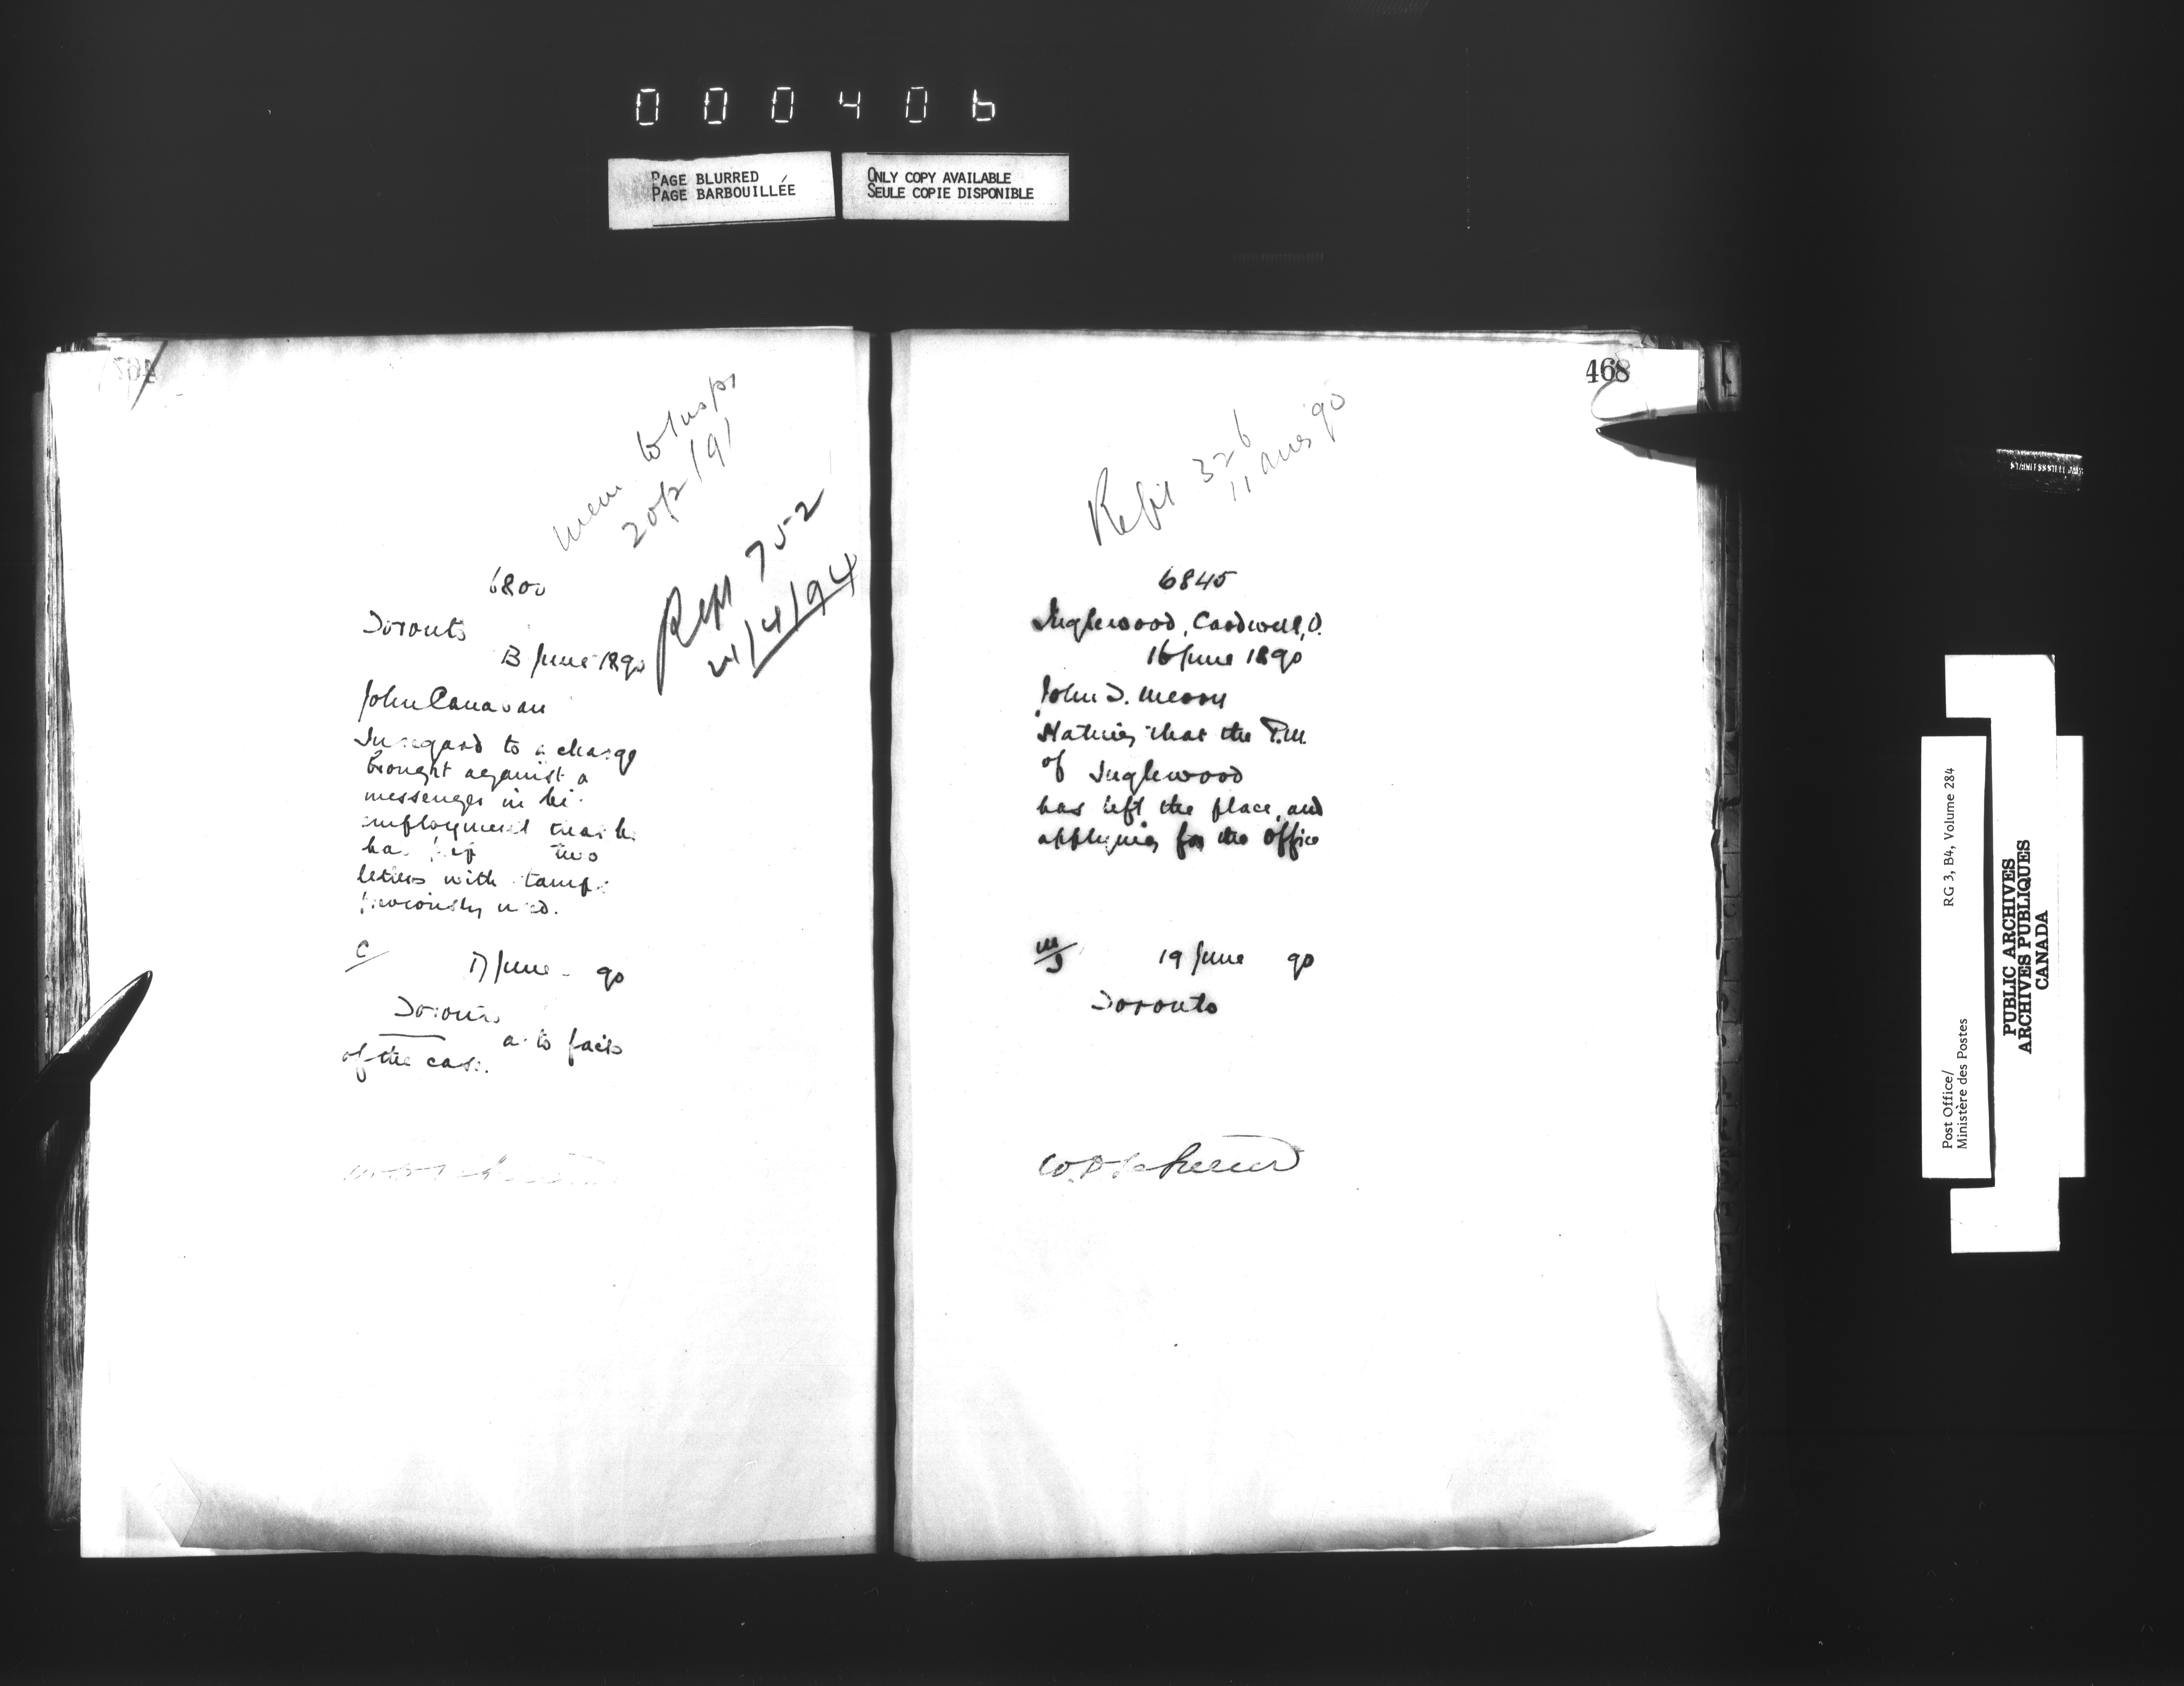 000406
PAGE BLURRED
PAGE BARBOUILLÉE
ONLY COPY AVAILABLE
SEULE COPIE DISPONIBLE
mem to Inspr
20/2/91
Rept 752
21/4/94
6800
Toronto
13 June 1890
John Canavan
In regard to a charge
brought against a
messenger in hi
employment that h
ha two
letters with tamp
previously used.
C
17 June - 90
Toronto
a to facts
of the case.
468
Refil 326
11 Aug 90
6845
Inglewood, Cardwell, O.
16 June 1890
John T.
Stating that the P.M.
of Inglewood
has left the place, and
applying for the office
19 June 90
Toronto
Post Office/
Ministère des Postes
RG 3, B4, Volume 284
PUBLIC ARCHIVES
ARCHIVES PUBLIQUES
CANADA